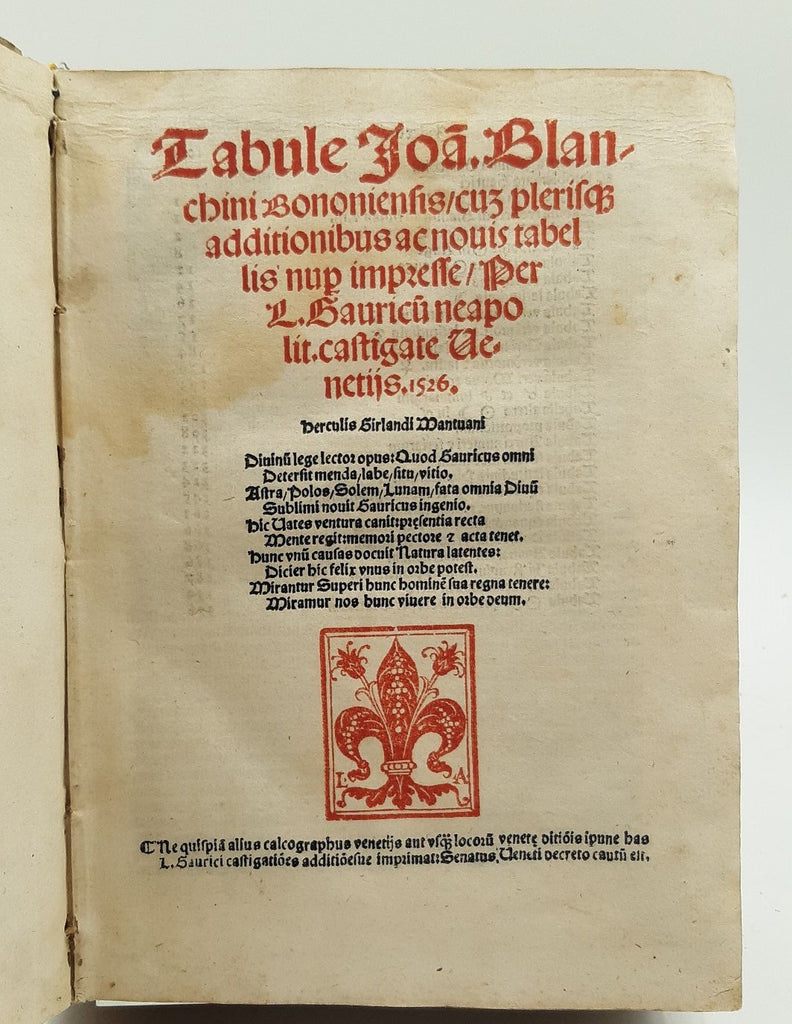 Tabule Joã. Blan-
chini Bononiensis/cuʒ pleriſqʒ
additionibus ac nouis tabel
lis nuꝑ impreſſe/ Per
L. Gauricũ neapo
lit. caſtigate Ue-
netijs. 1526.
Herculis Girlandi Mantuani
Diuinũ lege lector opus: Quod Gauricus omni
Deterſit menda, labe, ſitu, vitio.
Aſtra, Polos, Solem, Lunam, fata omnia Diuũ
Sublimi nouit Gauricus ingenio.
Hic Uates ventura canit: pręſentia recta
Mente regit: memori pectore ⁊ acta tenet.
Hunc vnũ cauſas docuit Natura latentes:
Dicier hic felix vnus in orbe poteſt.
Mirantur Superi hunc hominẽ ſua regna tenere:
Miramur nos hunc viuere in orbe deum.
L A
¶ Ne quiſpiã alius calcographus venetijs aut vſqʒ̃ locorũ venetę ditiõis ipune has
L. Gaurici caſtigatiões additiõeſue imprimat: Senatus Ueneti decreto cautũ eſt.